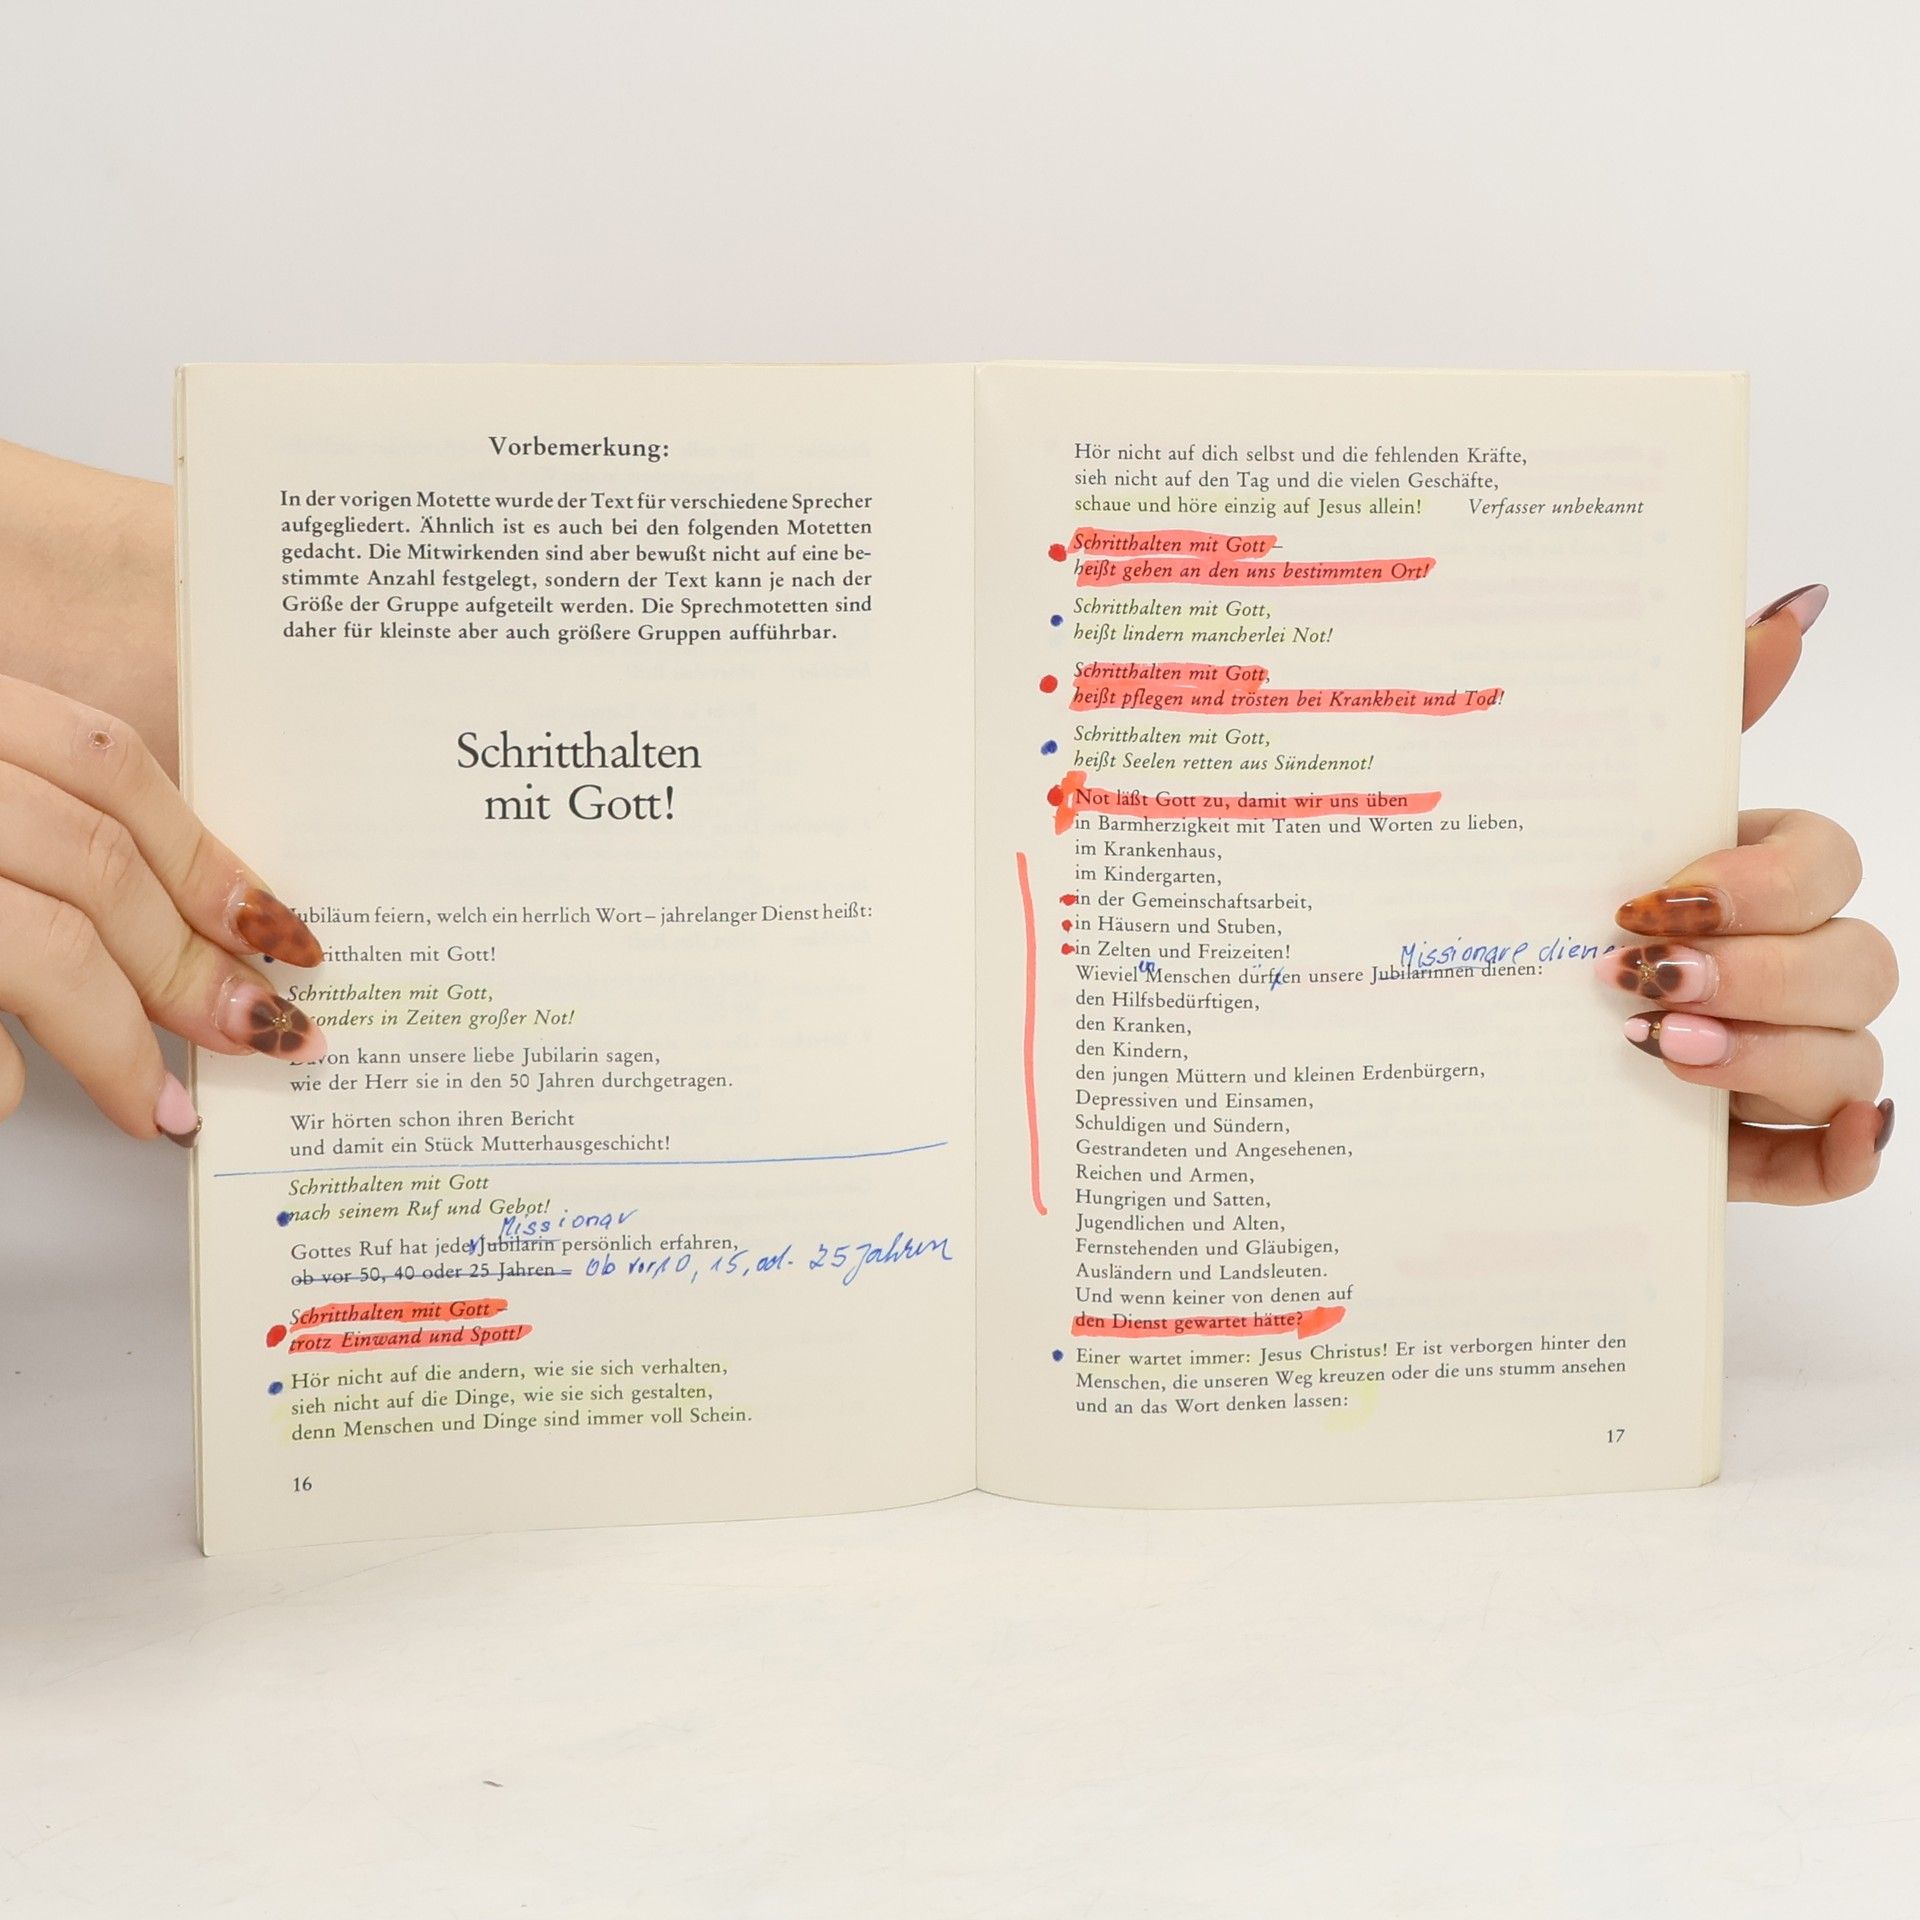 Vorbemerkung:
In der vorigen Motette wurde der Text für verschiedene Sprecher
aufgegliedert. Ähnlich ist es auch bei den folgenden Motetten
gedacht. Die Mitwirkenden sind aber bewußt nicht auf eine be-
stimmte Anzahl festgelegt, sondern der Text kann je nach der
Größe der Gruppe aufgeteilt werden. Die Sprechmotetten sind
daher für kleinste aber auch größere Gruppen aufführbar.
Schritthalten
mit Gott!
Jubiläum feiern, welch ein herrlich Wort – jahrelanger Dienst heißt:
ritthalten mit Gott!
Schritthalten mit Gott,
sonders in Zeiten großer Not!
Davon kann unsere liebe Jubilarin sagen,
wie der Herr sie in den 50 Jahren durchgetragen.
Wir hörten schon ihren Bericht
und damit ein Stück Mutterhausgeschicht!
Schritthalten mit Gott
nach seinem Ruf und Gebot!
Missionar
Gottes Ruf hat jede Jubilarin persönlich erfahren,
ob vor 50, 40 oder 25 Jahren – Ob vor 10, 15, od. 25 Jahren
Schritthalten mit Gott –
trotz Einwand und Spott!
Hör nicht auf die andern, wie sie sich verhalten,
sieh nicht auf die Dinge, wie sie sich gestalten,
denn Menschen und Dinge sind immer voll Schein.
16
Hör nicht auf dich selbst und die fehlenden Kräfte,
sieh nicht auf den Tag und die vielen Geschäfte,
schaue und höre einzig auf Jesus allein! Verfasser unbekannt
Schritthalten mit Gott –
heißt gehen an den uns bestimmten Ort!
Schritthalten mit Gott,
heißt lindern mancherlei Not!
Schritthalten mit Gott,
heißt pflegen und trösten bei Krankheit und Tod!
Schritthalten mit Gott,
heißt Seelen retten aus Sündennot!
Not läßt Gott zu, damit wir uns üben
in Barmherzigkeit mit Taten und Worten zu lieben,
im Krankenhaus,
im Kindergarten,
in der Gemeinschaftsarbeit,
in Häusern und Stuben,
in Zelten und Freizeiten!
Missionare diene
Wieviel en Menschen dürften unsere Jubilarinnen dienen:
den Hilfsbedürftigen,
den Kranken,
den Kindern,
den jungen Müttern und kleinen Erdenbürgern,
Depressiven und Einsamen,
Schuldigen und Sündern,
Gestrandeten und Angesehenen,
Reichen und Armen,
Hungrigen und Satten,
Jugendlichen und Alten,
Fernstehenden und Gläubigen,
Ausländern und Landsleuten.
Und wenn keiner von denen auf
den Dienst gewartet hätte?
Einer wartet immer: Jesus Christus! Er ist verborgen hinter den
Menschen, die unseren Weg kreuzen oder die uns stumm ansehen
und an das Wort denken lassen:
17